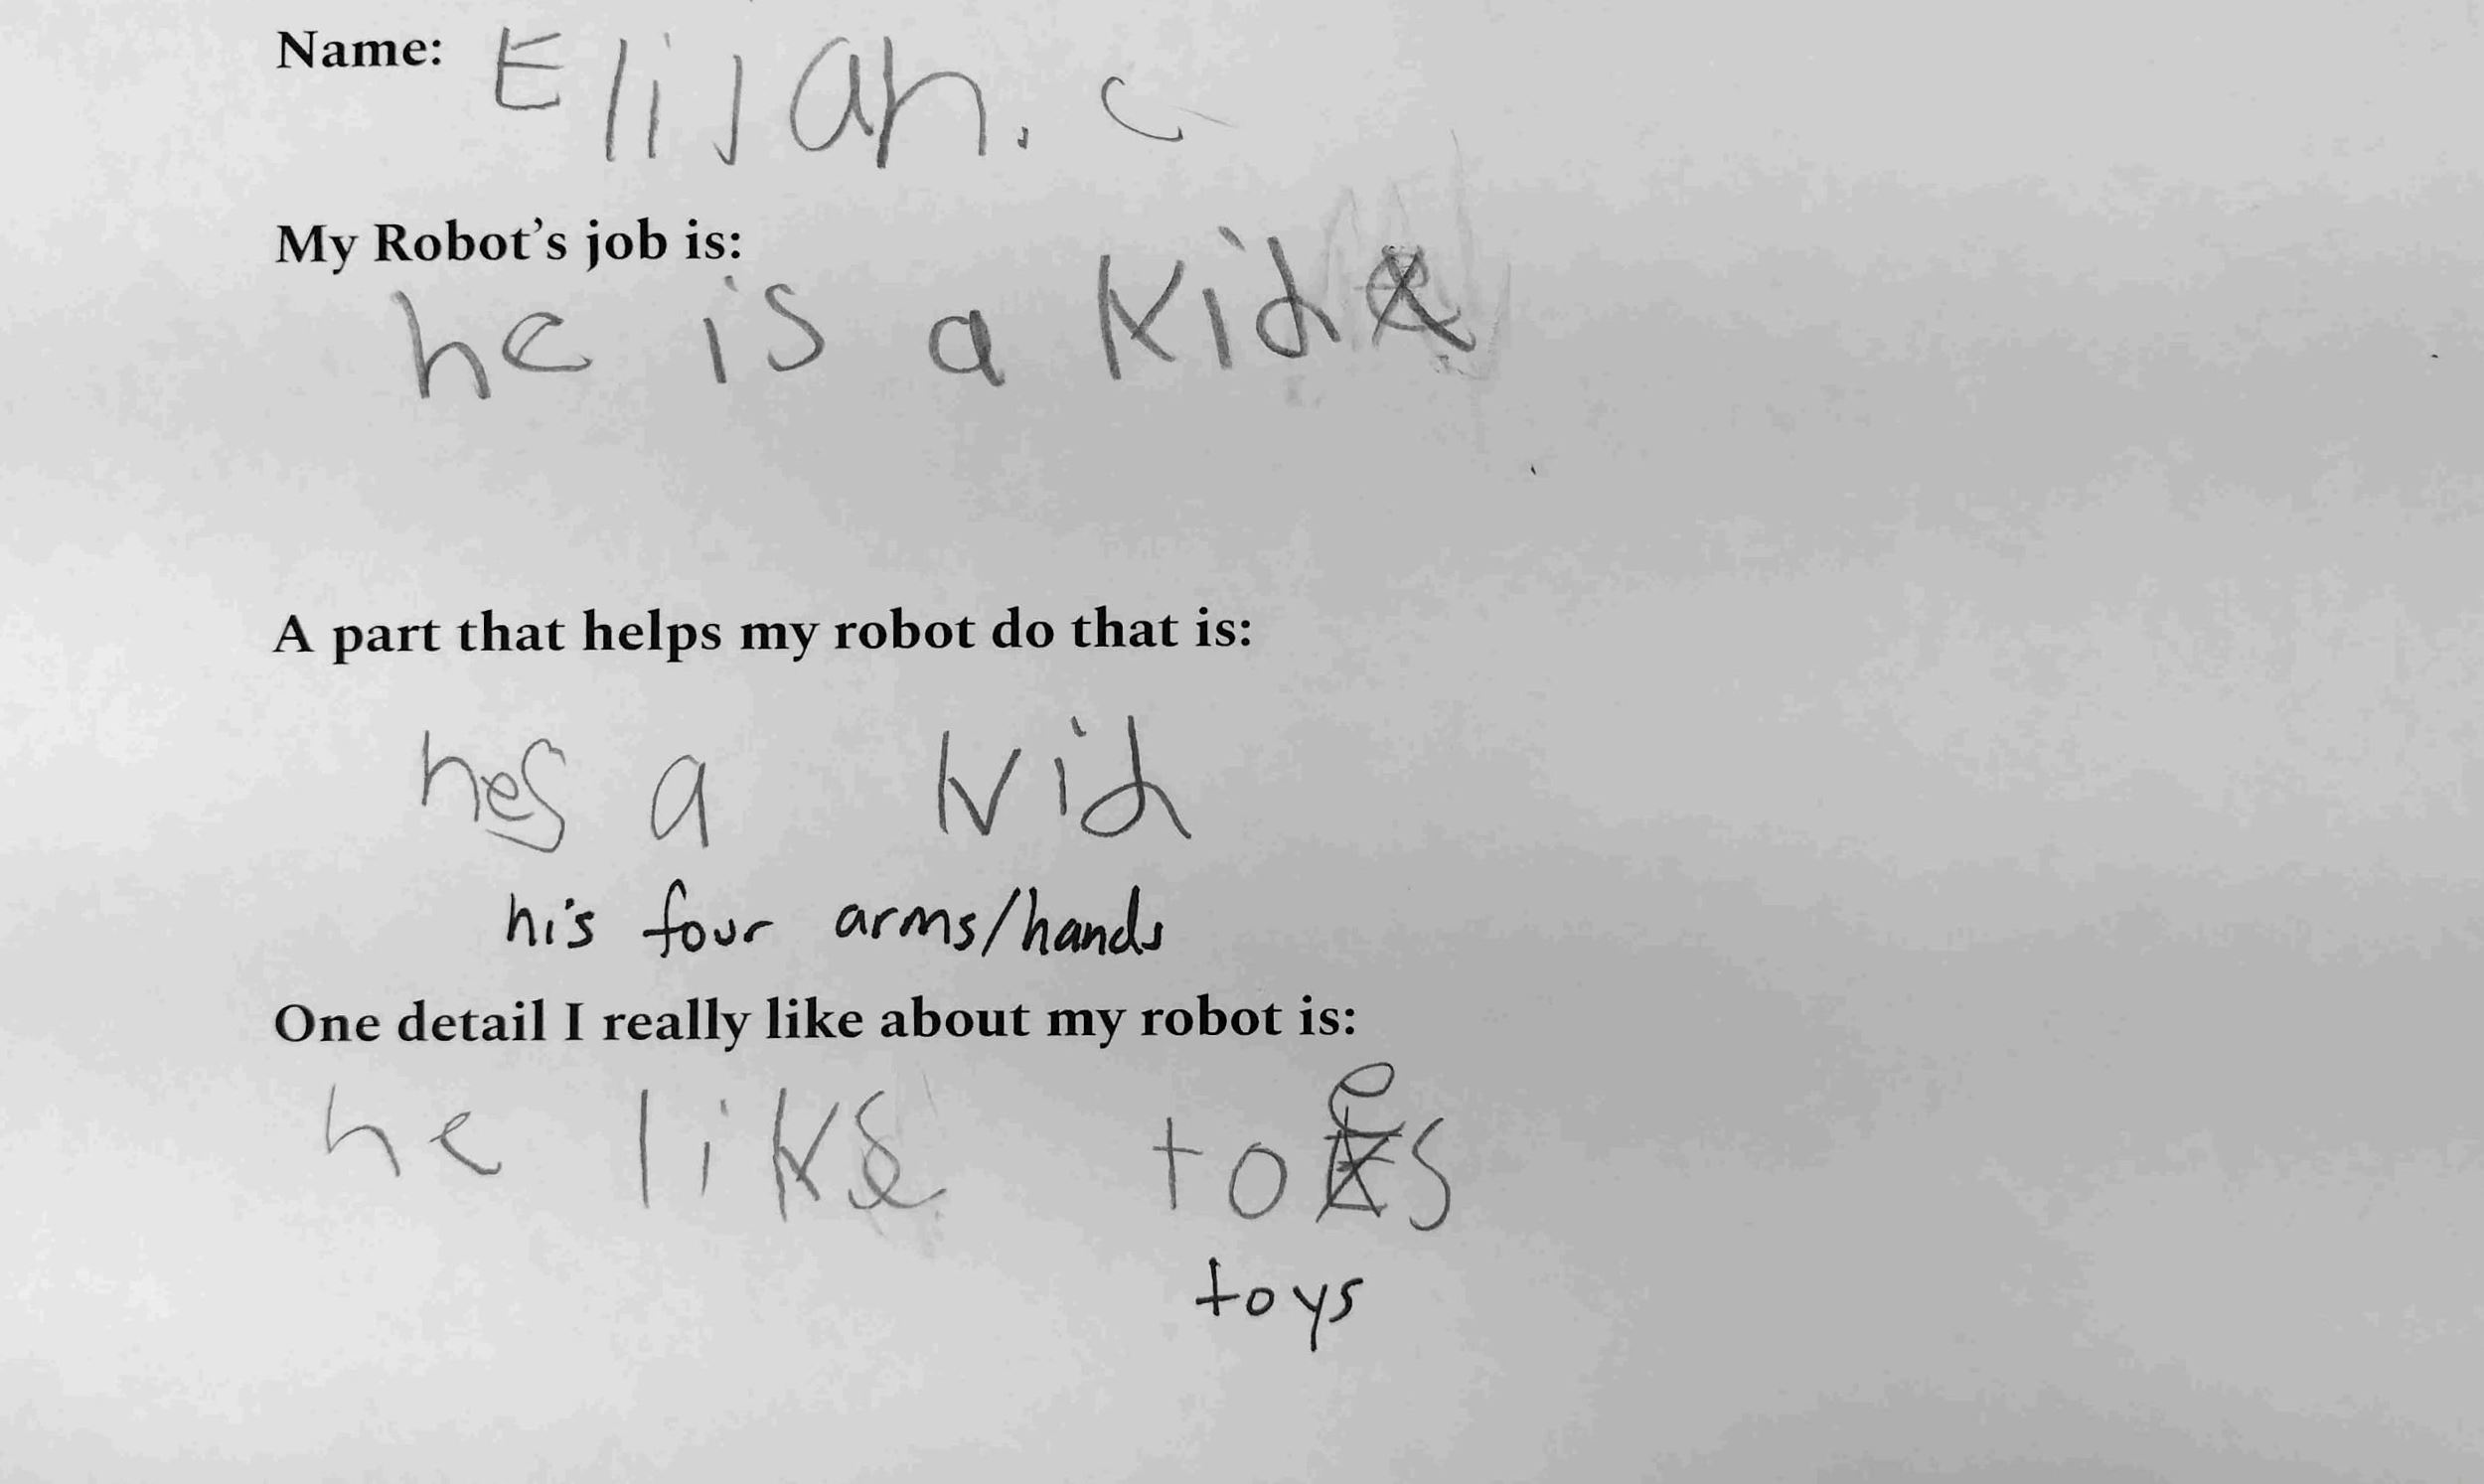 Name: Elijah. C
My Robot's job is:
he is a kid
A part that helps my robot do that is:
hes a kid
his four arms/hands
One detail I really like about my robot is:
he like toes
toys